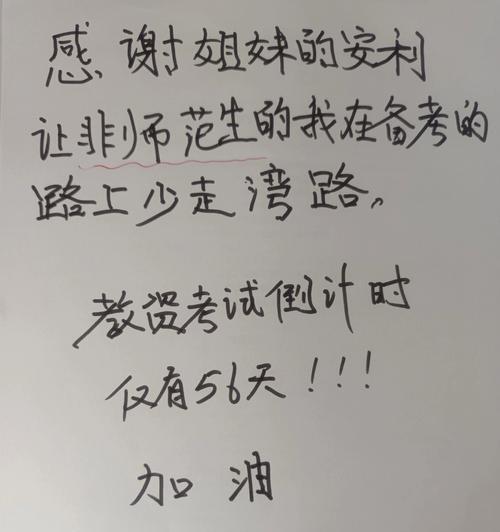 感谢姐妹的安利
让非师范生的我在备考的
路上少走湾路。
教资考试倒计时
仅有56天！！！
加油